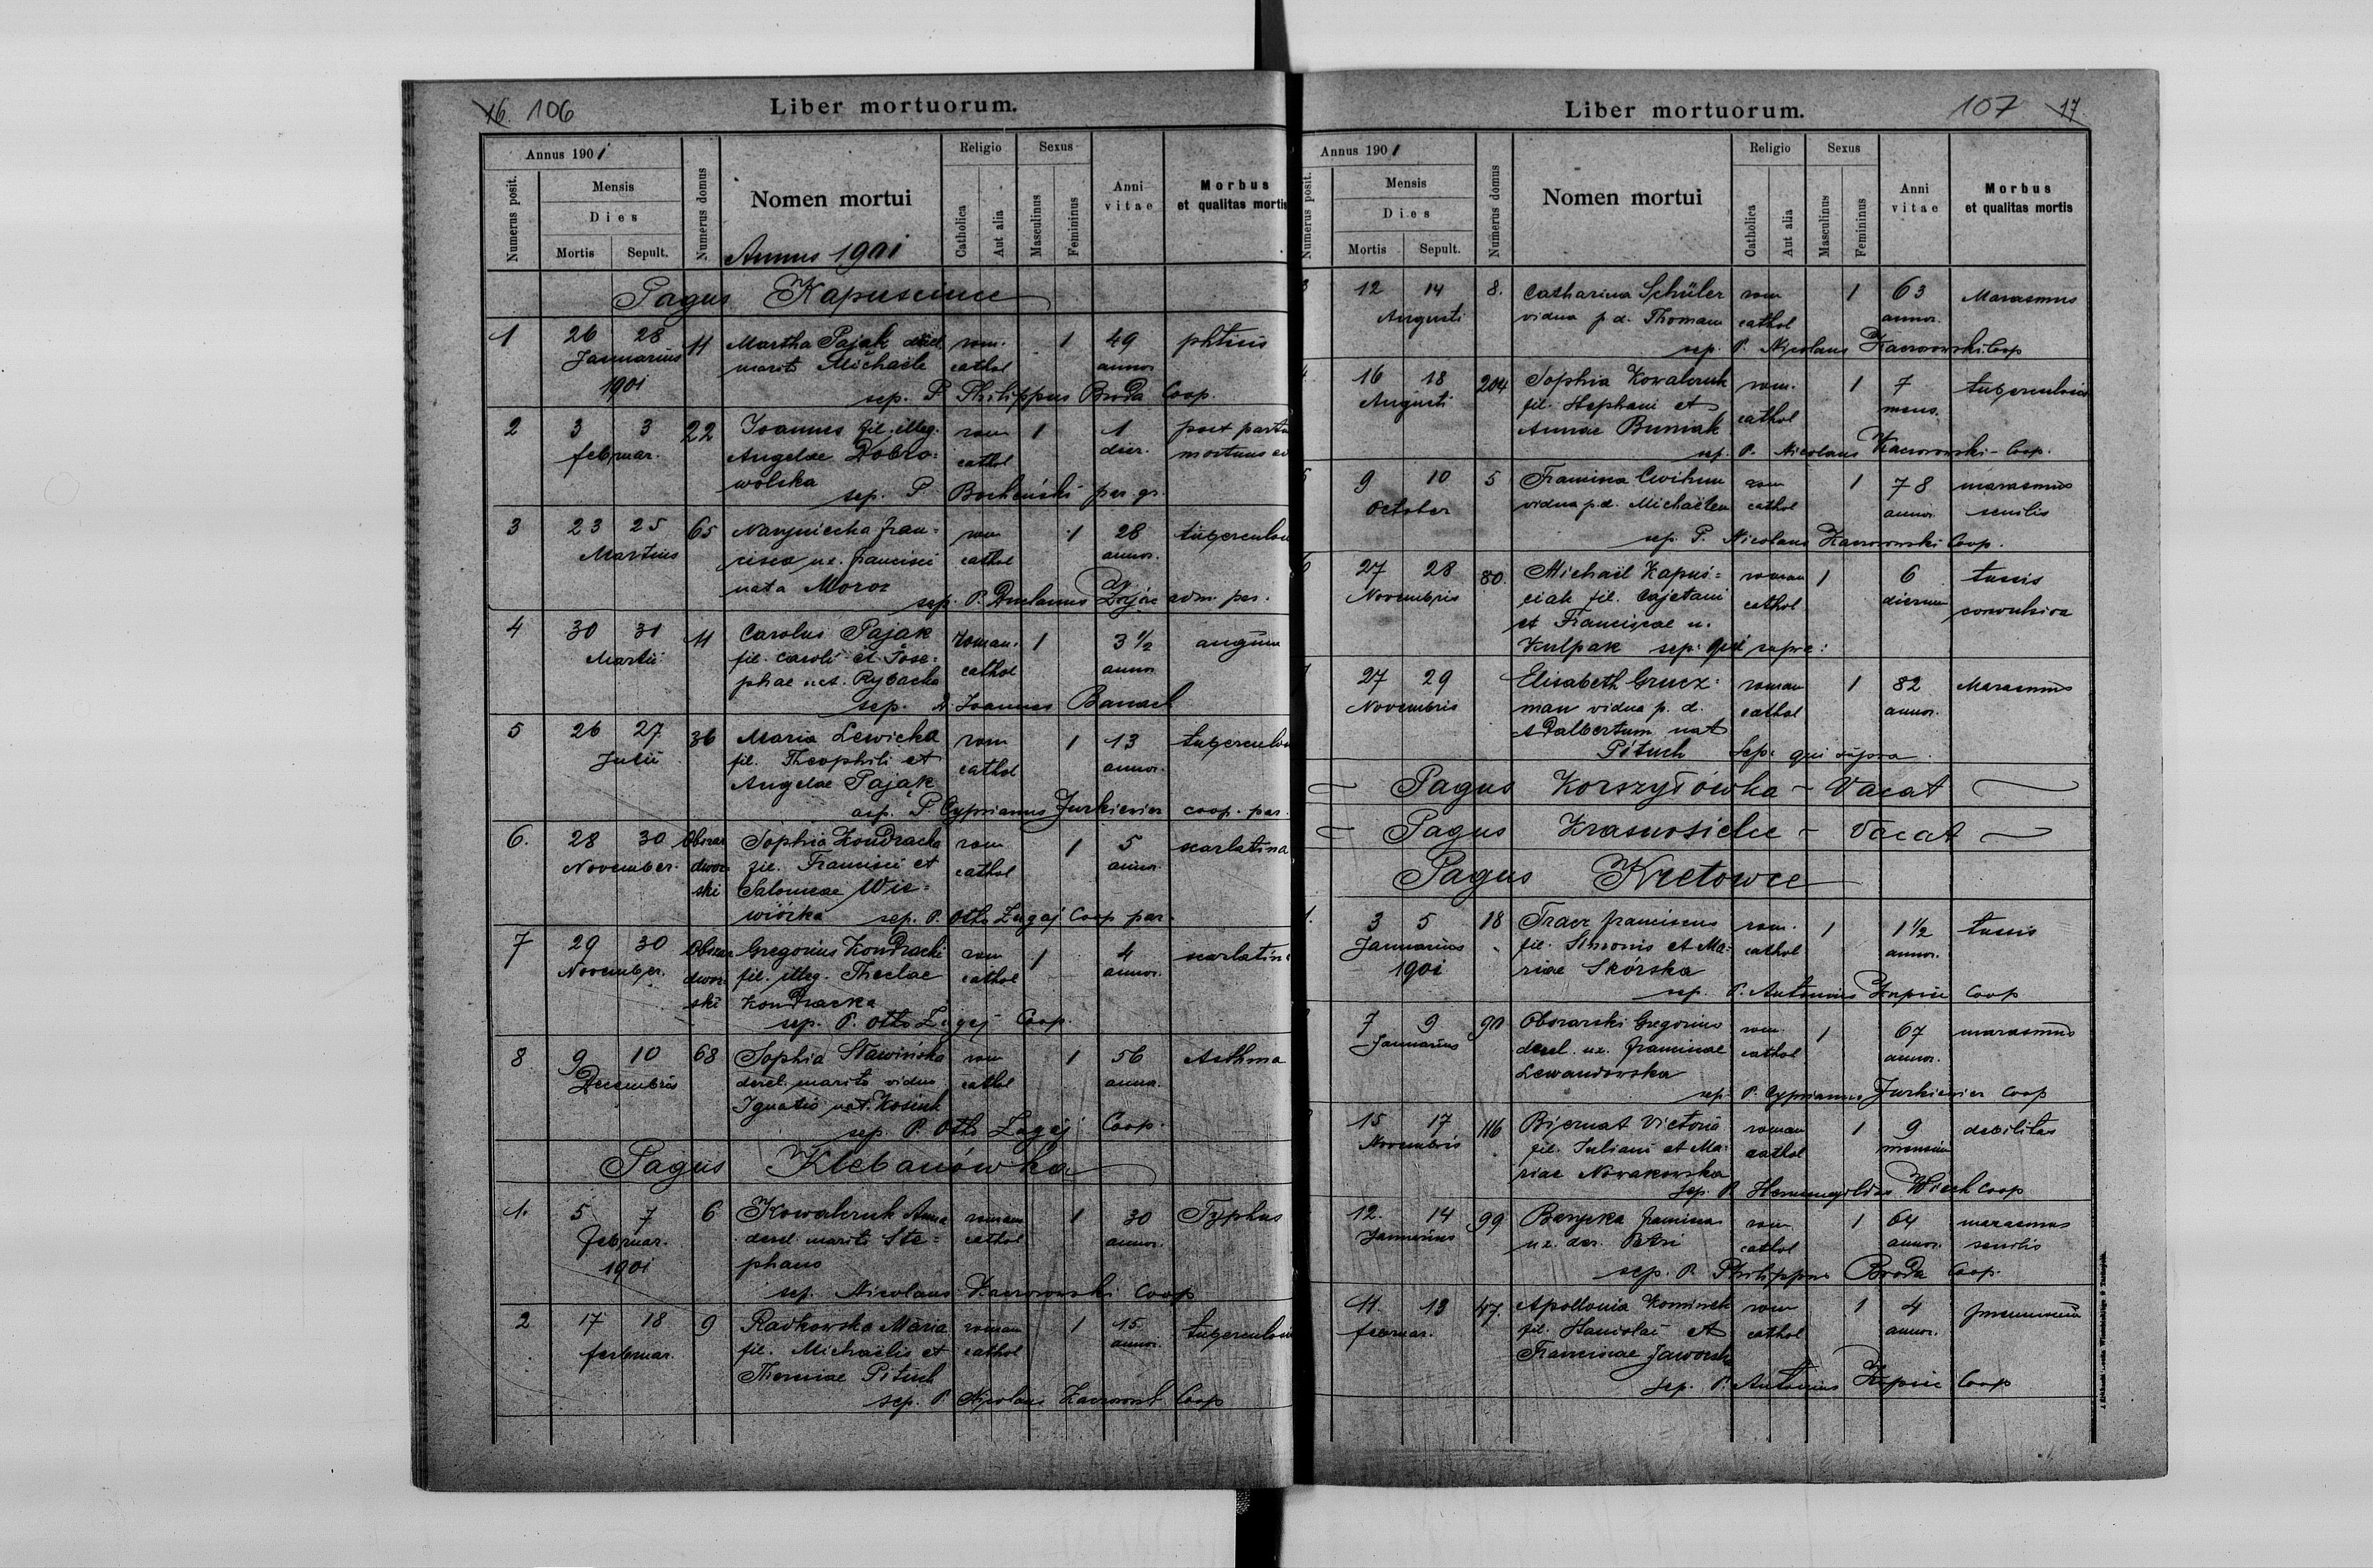 16. 106
Liber mortuorum.
Annus 1901
Numerus posit.
Mensis
Dies
Mortis Sepult.
Numerus domus
Nomen mortui
Annus 1901
Religio
Catholica
Aut alia
Sexus
Masculinus
Femininus
Anni
vitae
Morbus
et qualitas mortis
Pagus Kapuscince
1 26 28 11 Martha Pająk rom. 1 49 phtisis
Januarius marito Michaële cathol annor
1901 sep. P Philippus Broda Coop.
2 3 3 22 Joannes fil. illeg. rom 1 1 post partu
februar. Angelae Dobro= cathol dier. mortuus
wolska
sep. P Bocheński par. gr.
3 23 25 65 fran= rom 1 28 tuberculos
Martius cisca ux. francisci cathol annor.
nata Moroz
sep. P. Zając adm. par.
4 30 31 11 Carolus Pająk roman. 1 3 1/2 angina
Martii fil. Caroli et Jose= cathol annor
phae nat. Rybacka
sep. P. Joannes
5 26 27 36 Maria Lewicka rom 1 13 tuberculos
Julii fil. Theophili et cathol annor.
Angelae Pająk
P. Cyprianus Jurkiewicz coop. par.
6. 28 30 Obszar Sophia Kondracka rom 1 5 scarlatina
November. dwor= fil. Francisci et cathol annor.
ski Salomeae Wie=
wiórka sep. P. Otto Zagaj Coop par.
7 29 30 Obszar Gregorius Kondracki rom 1 4 scarlatina
November. dwor= fil. illeg. Theclae cathol annor.
ski Kondracka
sep. P. Otto Zagaj Coop.
8 9 10 68 Sophia Stawińska rom 1 56 Asthma
Decembris derel. marito viduo cathol
Ignatio nat. Kosiuk
sep. P. Otto Zagaj Coop.
Pagus Klebanówka
1. 5 7 6 Kowalczuk Anna roman 1 30 Typhus
februar. derel. marito Ste= cathol annor.
1901 phano
sep. Nicolaus Kaczorowski Coop
2 17 18 9 Radkowska Maria roman 1 15 tuberculosis
februar. fil. Michaelis et cathol annor.
Pituch
sep. P Nicolaus Coop
Liber mortuorum.
107 17
Annus 1901
Numerus posit.
Mensis
Dies
Mortis Sepult.
Numerus domus
Nomen mortui
Religio
Catholica
Aut alia
Sexus
Masculinus
Femininus
Anni
vitae
Morbus
et qualitas mortis
3 12 14 8. Catharina Schüler rom 1 63 Marasmus
Augusti vidua p. d. Thomam cathol annor.
sep. P. Nicolaus Kaczorowski Coop
16 18 204 Sophia Kowalczuk rom. 1 7 tuberculosis
Augusti fil. Stephani et cathol mens.
Annae Buniak
sep. P. Nicolaus Kaczorowski - Coop.
9 10 5 rom 1 78 marasmus
October vidua p.d. Michaëlem cathol annor. senilis
sep. P. Nicolaus Kaczorowski Coop.
27 28 80. Michaël Kapuś= roman 1 6 tussis
Novembris ciak fil. Cajetani cathol dierum convulsiva
et Franciscae n.
Kulpak sep. qui supra.
27 29 Elisabeth Grucz= roman 1 82 Marasmus
Novembris man vidua p. d. cathol annor.
Adalbertum nat
Pituch Sep. qui supra.
Pagus Korszyłówka - Vacat
Pagus Krasnosielce - Vacat
Pagus Kretowce
1. 3 5 18 Tracz franciscus rom. 1 1 1/2 tussis
Januarius fil. Simonis et Ma= cathol annor.
1901 riae Skórska
sep. P. Antonius Coop
7 9 90 Obszarski Gregorius rom. 1 67 marasmus
Januarius derel. ux. franciscae cathol annor.
Lewandowska
sep. P. Cyprianus Jurkiewicz Coop
15 17 116 Biernat Victoria roman 1 9 debilitas
Novembris fil. Juliani et Ma= cathol mensium
riae Nowakowska
sep. P. Hermengildus Coop
12. 14 99 rom 1 64 marasmus
Januarius ux. der. Petri cathol annor. senilis
sep. P. Philippus Broda Coop.
11. 13 47. Apollonia Kominek rom 1 4 pneumonia
februar. fil. Stanislai et cathol annor.
Franciscae
sep. P. Antonius Coop